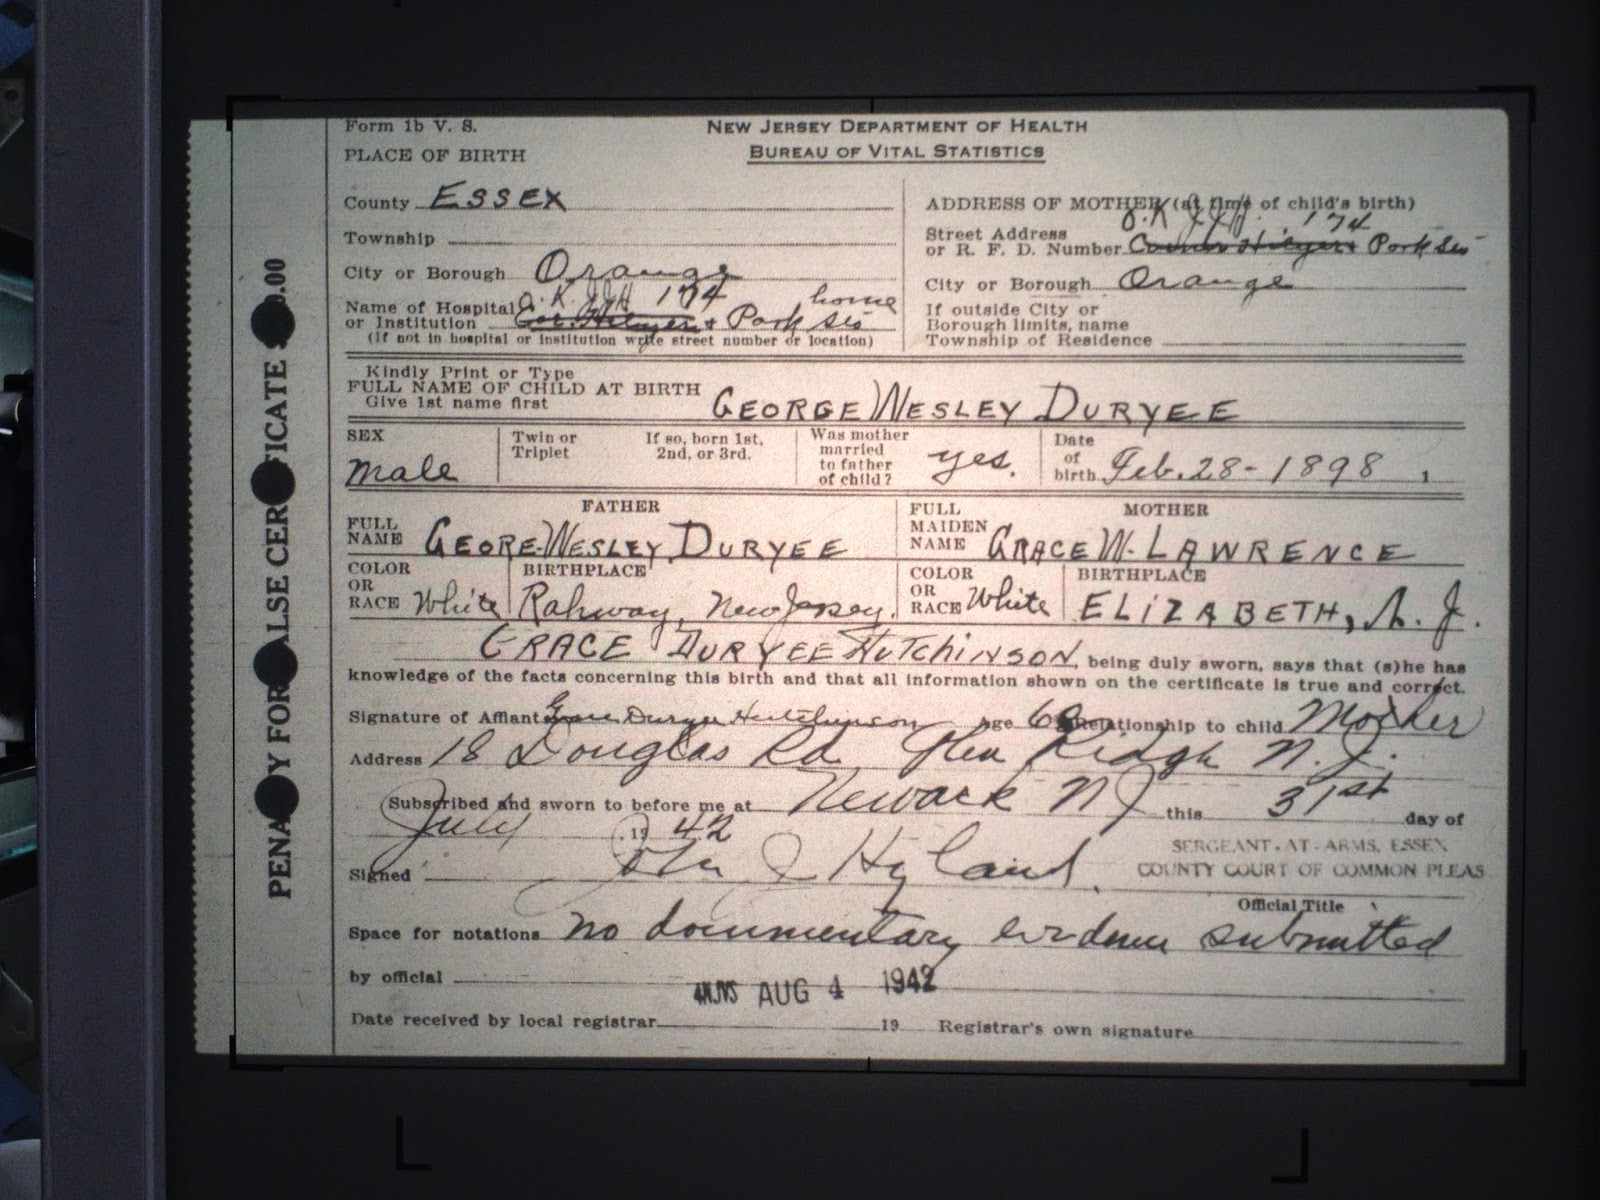 Form 1b V. S.
NEW JERSEY DEPARTMENT OF HEALTH
BUREAU OF VITAL STATISTICS
PLACE OF BIRTH
County ESSEX
Township
City or Borough Orange
Name of Hospital O.K. JJH 174 home
or Institution Cor. Hilyer + Park Sts
(If not in hospital or institution write street number or location)
ADDRESS OF MOTHER (at time of child's birth)
O.K JJH. 174
Street Address
or R. F. D. Number Corner Hilyer + Park Sts
City or Borough Orange
If outside City or
Borough limits, name
Township of Residence
Kindly Print or Type
FULL NAME OF CHILD AT BIRTH
Give 1st name first
GEORGE WESLEY DURYEE
SEX
male
Twin or
Triplet
If so, born 1st,
2nd, or 3rd.
Was mother
married
to father
of child?
yes.
Date
of
birth Feb. 28 - 1898 , 1
FATHER
FULL
NAME GEORE-WESLEY DURYEE
MOTHER
FULL
MAIDEN
NAME GRACE W. LAWRENCE
COLOR
OR
RACE White
BIRTHPLACE
Rahway, New Jersey.
COLOR
OR
RACE White
BIRTHPLACE
ELIZABETH, N. J.
GRACE DURYEE HUTCHINSON, being duly sworn, says that (s)he has
knowledge of the facts concerning this birth and that all information shown on the certificate is true and correct.
Signature of Affiant Grace Duryee Hutchinson Age Relationship to child Mother
Address 18 Douglas Rd Glen Ridge N. J.
Subscribed and sworn to before me at Newark NJ this 31st day of
July , 19 42
Signed John J Hyland.
SERGEANT-AT-ARMS, ESSEX
COUNTY COURT OF COMMON PLEAS
Official Title
Space for notations no documentary evidence submitted
by official
AUG 4 1942
Date received by local registrar 19 Registrar's own signature
PENA Y FOR ALSE CER FICATE .00